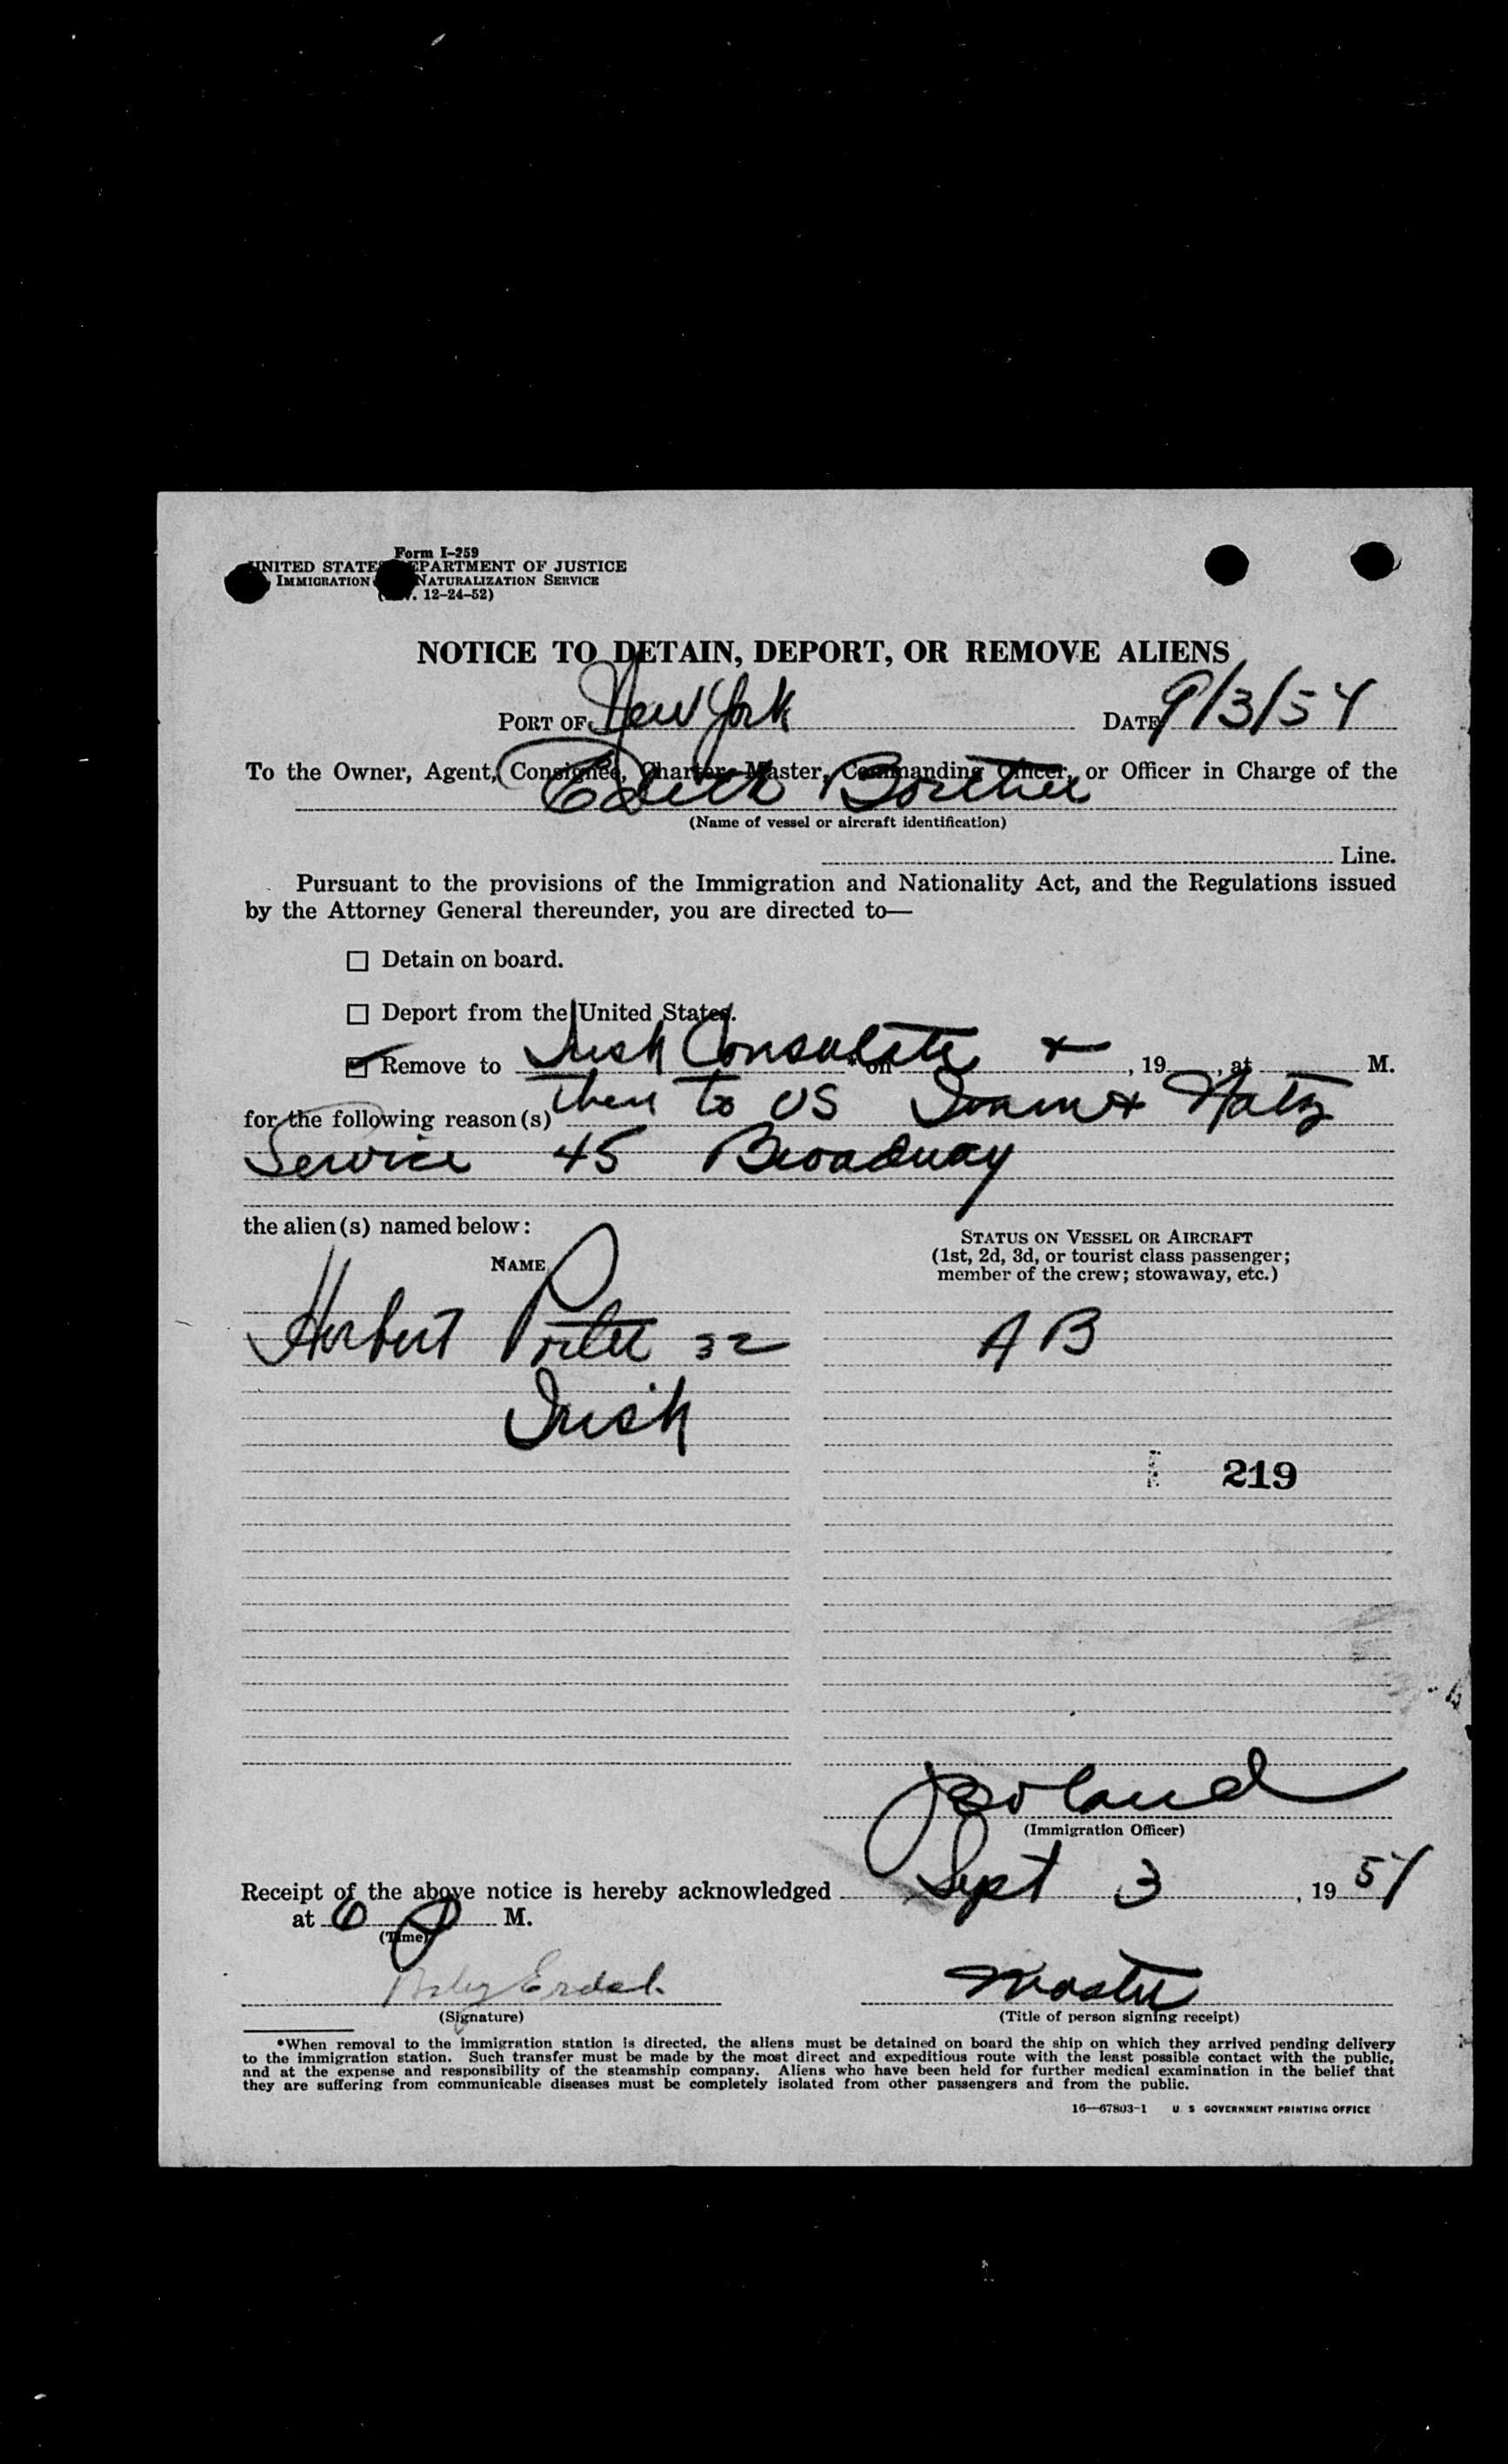 Form I-259
UNITED STATES DEPARTMENT OF JUSTICE
IMMIGRATION NATURALIZATION SERVICE
12-24-52)
NOTICE TO DETAIN, DEPORT, OR REMOVE ALIENS
PORT OF New York DATE 9/3/54
To the Owner, Agent, Consignee, Charter, Master, Commanding Officer, or Officer in Charge of the
Edith
(Name of vessel or aircraft identification)
Line.
Pursuant to the provisions of the Immigration and Nationality Act, and the Regulations issued
by the Attorney General thereunder, you are directed to—
☐ Detain on board.
☐ Deport from the United States.
☑ Remove to Irish Consulate + * on , 19 , at M.
for the following reason(s) then to US Imm + Natz
Service 45 Broadway
the alien(s) named below:
NAME
STATUS ON VESSEL OR AIRCRAFT
(1st, 2d, 3d, or tourist class passenger;
member of the crew; stowaway, etc.)
Herbert Porter 32 AB
Irish
219
Boland
(Immigration Officer)
Receipt of the above notice is hereby acknowledged Sept 3, 19 54
at 6 P M.
(Time)
Master
(Signature) (Title of person signing receipt)
*When removal to the immigration station is directed, the aliens must be detained on board the ship on which they arrived pending delivery
to the immigration station. Such transfer must be made by the most direct and expeditious route with the least possible contact with the public,
and at the expense and responsibility of the steamship company. Aliens who have been held for further medical examination in the belief that
they are suffering from communicable diseases must be completely isolated from other passengers and from the public.
16—67803-1 U S GOVERNMENT PRINTING OFFICE